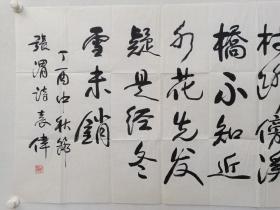 村路傍溪
橋不知近
水花先发
疑是经冬
雪未銷
丁酉中秋節
張渭詩袁偉